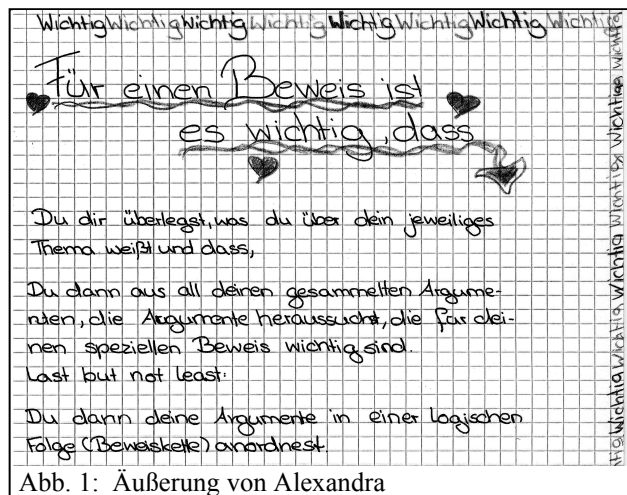 Wichtig Wichtig Wichtig Wichtig Wichtig Wichtig Wichtig Wichtig
Für einen Beweis ist
es wichtig, dass
Du dir überlegst, was du über dein jeweiliges
Thema weißt und dass,
Du dann aus all deinen gesammelten Argume-
nten, die Argumente heraussuchst, die für dei-
nen speziellen Beweis wichtig sind.
Last but not least:
Du dann deine Argumente in einer logischen
Folge (Beweiskette) anordnest.
Wichtig Wichtig Wichtig Wichtig Wichtig Wichtig
Abb. 1: Äußerung von Alexandra